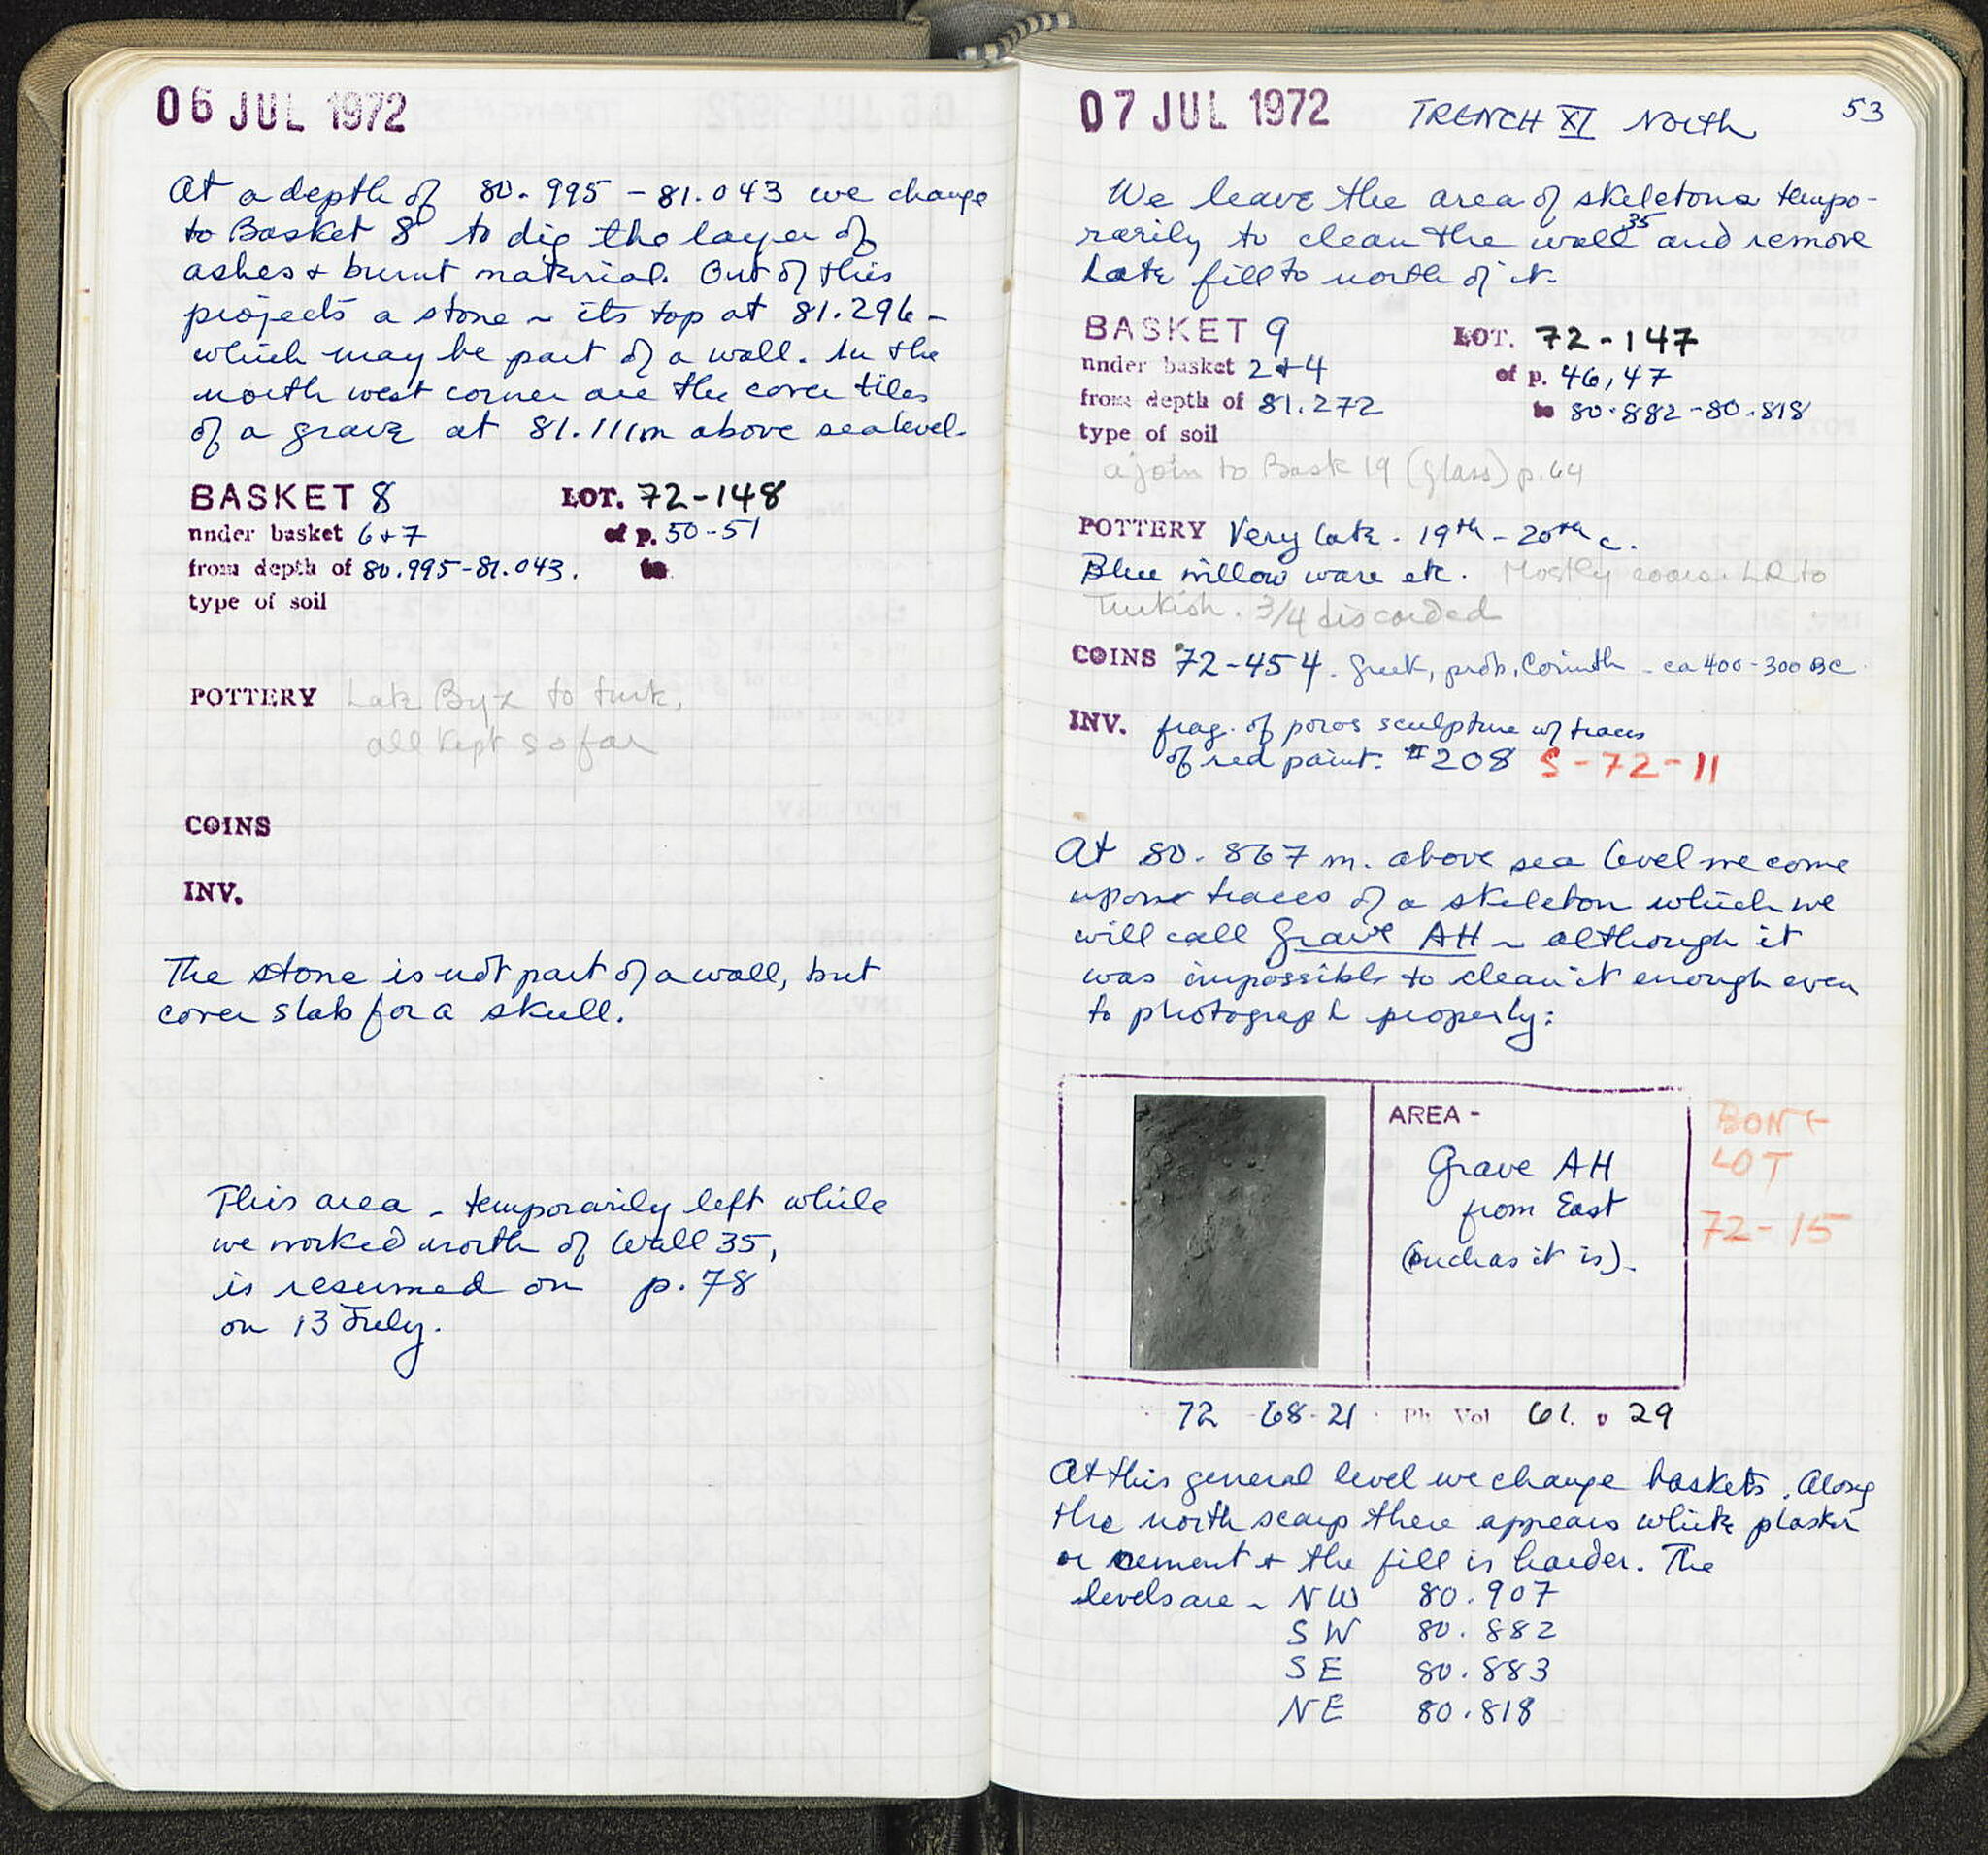 06 JUL 1972
At a depth of 80.995 - 81.043 we change
to Basket 8 to dig the layer of
ashes + burnt material. Out of this
projects a stone ~ its top at 81.296 -
which may be part of a wall. In the
north west corner are the cover tiles
of a grave at 81.111m above sealevel.
BASKET 8 LOT. 72-148
under basket 6+7 of p. 50-51
from depth of 80.995-81.043. to
type of soil
POTTERY Late Byz to turk,
all kept so far
COINS
INV.
The stone is not part of a wall, but
cover slab for a skull.
This area - temporarily left while
we worked north of Wall 35,
is resumed on p. 78
on 13 July.
07 JUL 1972 TRENCH XI North 53
We leave the area of skeletons tempo-
rarily to clean the wall 35 and remove
Late fill to north of it.
BASKET 9 LOT. 72-147
under basket 2+4 of p. 46,47
from depth of 81.272 to 80.882-80.818
type of soil
a join to Bask 19 (glass) p.64
POTTERY Very late. 19th - 20th c.
Blue willow ware etc. Mostly coars. LR to
Turkish. 3/4 discarded
COINS 72-454. Greek, prob. Corinth - ca 400-300 BC
INV. frag. of poros sculpture w/ traces
of red paint. #208 S-72-11
At 80.867 m. above sea level we come
upon traces of a skeleton which we
will call Grave AH ~ although it
was impossible to clean it enough even
to photograph properly:
AREA -
Grave AH
from East
(such as it is).
BONE
LOT
72-15
72 -68-21 Ph Vol 61. p 29
At this general level we change baskets. Along
the north scarp there appears white plaster
or cement + the fill is harder. The
levels are ~ NW 80.907
SW 80.882
SE 80.883
NE 80.818